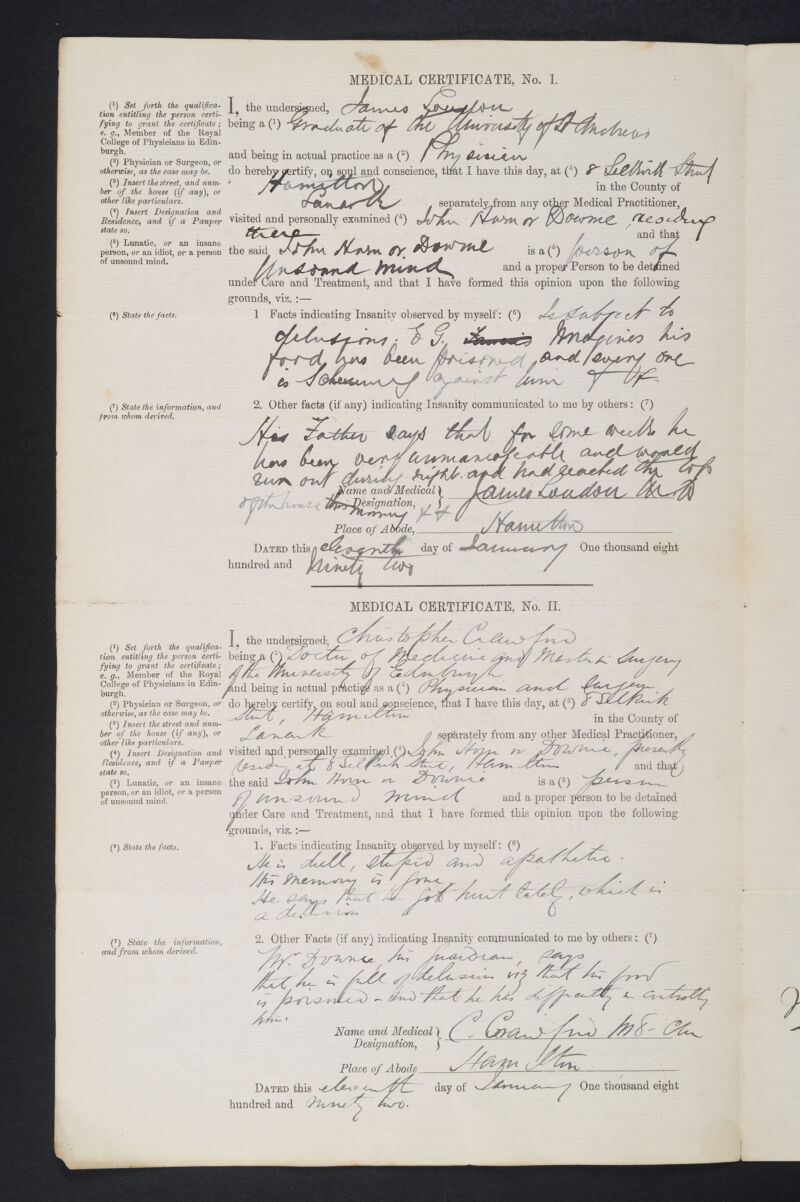 MEDICAL CERTIFICATE, No. I.
(1) Set forth the qualifica-
tion entitling the person certi-
fying to grant the certificate;
e. g., Member of the Royal
College of Physicians in Edin-
burgh.
(2) Physician or Surgeon, or
otherwise, as the case may be.
(3) Insert the street, and num-
ber of the house (if any), or
other like particulars.
(4) Insert Designation and
Residence, and if a Pauper
state so.
(5) Lunatic, or an insane
person, or an idiot, or a person
of unsound mind.
I, the undersigned, James Loudon
being a (1) Graduate of the University of St Andrews
and being in actual practice as a (2) Physician
do hereby certify, on soul and conscience, that I have this day, at (3) 8 Selkirk Street
Hamilton in the County of
Lanark separately from any other Medical Practitioner,
visited and personally examined (4) John Horn or Downie, residing
there and that
the said John Horn or Downie is a (5) person of
unsound mind and a proper Person to be detained
under Care and Treatment, and that I have formed this opinion upon the following
grounds, viz. :—
(6) State the facts.
1 Facts indicating Insanity observed by myself: (6) Is subject to
delusions. E.G. Imagines his
food has been poisoned and every one
is scheming against him
(7) State the information, and
from whom derived.
2. Other facts (if any) indicating Insanity communicated to me by others: (7)
His Father says that for some weeks he
has been very unmanageable and would
run out during night and had reached the top
of the house this morning
Name and Medical Designation, James Loudon M.D
Place of Abode, Hamilton
DATED this eleventh day of January One thousand eight
hundred and ninety two
MEDICAL CERTIFICATE, No. II.
(1) Set forth the qualifica-
tion entitling the person certi-
fying to grant the certificate;
e. g., Member of the Royal
College of Physicians in Edin-
burgh.
(2) Physician or Surgeon, or
otherwise, as the case may be.
(3) Insert the street and num-
ber of the house (if any), or
other like particulars.
(4) Insert Designation and
Residence, and if a Pauper
state so.
(5) Lunatic, or an insane
person, or an idiot, or a person
of unsound mind.
I, the undersigned, Christopher Crawford
being a (1) Doctor of Medicine and Master in Surgery
of the University of Edinburgh
and being in actual practice as a (2) Physician and Surgeon
do hereby certify, on soul and conscience, that I have this day, at (3) 8 Selkirk
Street, Hamilton in the County of
Lanark separately from any other Medical Practitioner,
visited and personally examined (4) John Horn or Downie, presently
residing at 8 Selkirk Street, Hamilton and that
the said John Horn or Downie is a (5) person
of unsound mind and a proper person to be detained
under Care and Treatment, and that I have formed this opinion upon the following
grounds, viz. :—
(6) State the facts.
1. Facts indicating Insanity observed by myself: (6)
He is dull, stupid and apathetic.
His memory is gone.
He says that he got hurt lately, which is
a delusion
(7) State the information,
and from whom derived.
2. Other Facts (if any) indicating Insanity communicated to me by others: (7)
Mr. Downie, his guardian, says
that he is full of delusions viz that his food
is poisoned - and that he has difficulty in controlling
him.
Name and Medical Designation, C. Crawford MB-CM
Place of Abode Hamilton
DATED this eleventh day of January One thousand eight
hundred and ninety two.